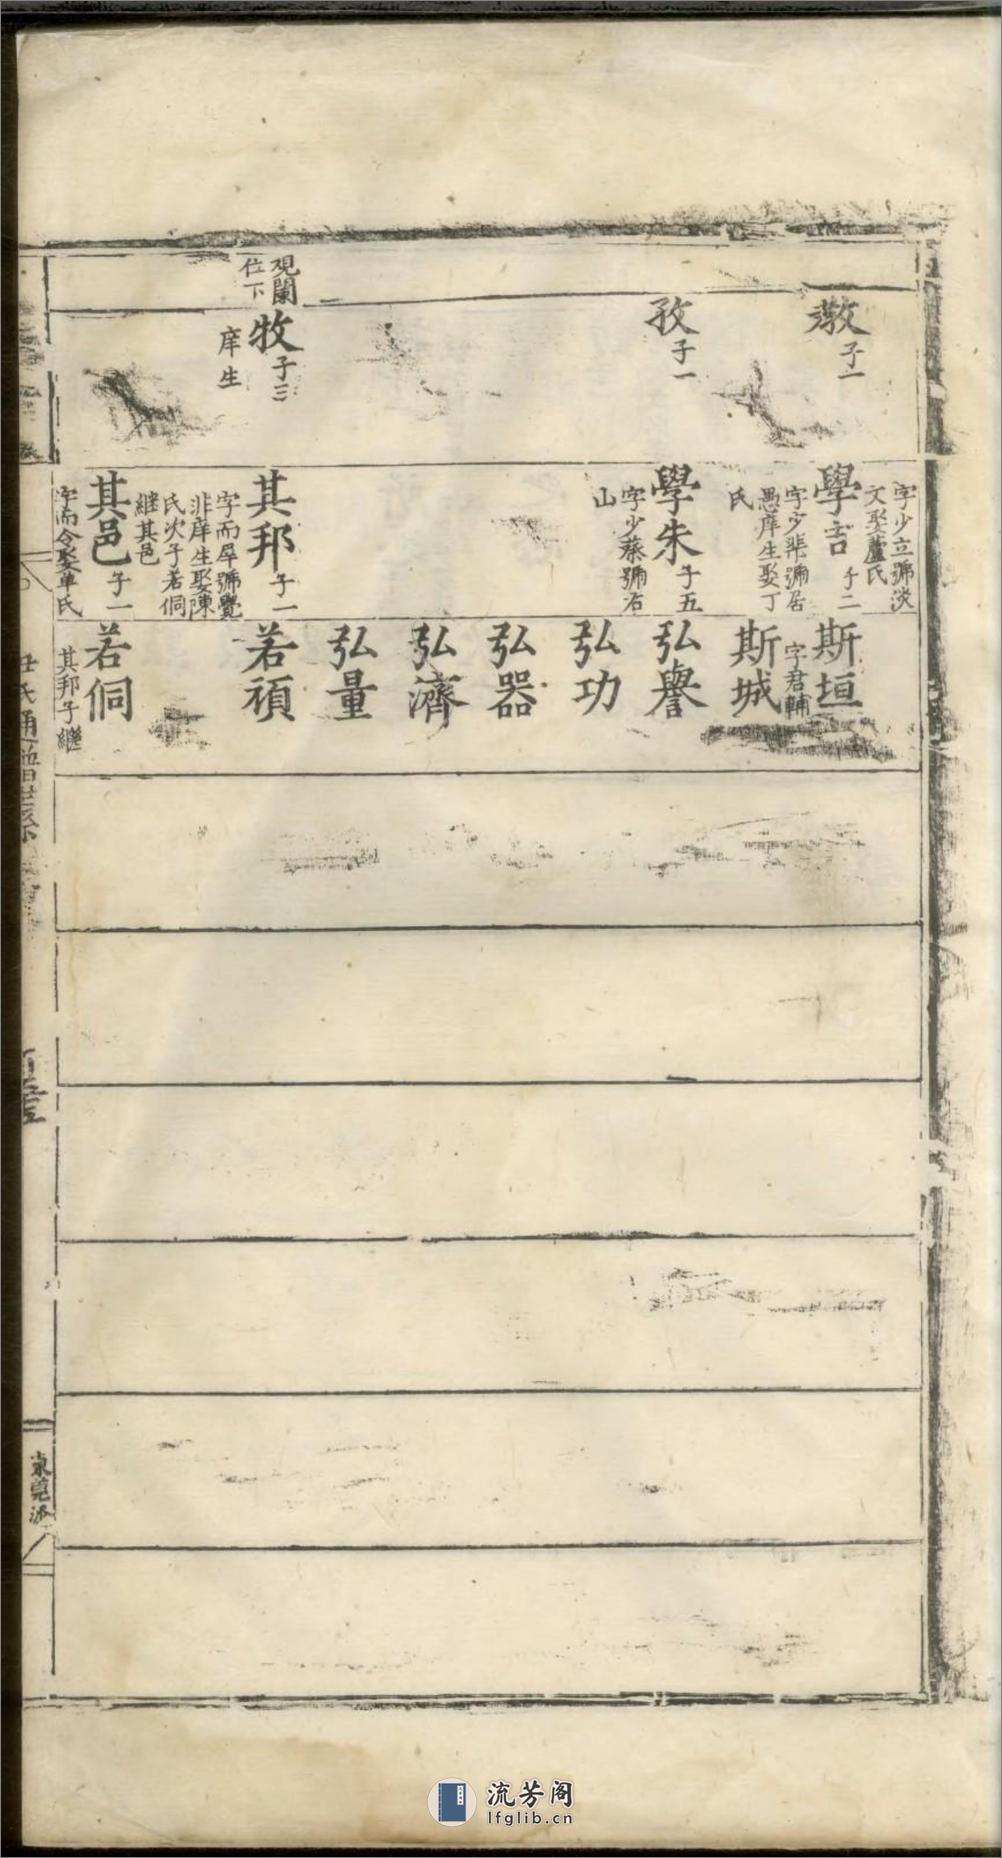 觀闌
位下
敩
子一
孜
子一
牧
子三
庠生
字少立號淡
文娶蘆氏
學言
子二
字少棐號居
愚庠生娶丁
氏
學朱
子五
字少蔡號右
山
其邦
子一
字而犀號覺
非庠生娶陳
氏次子若侗
継其邑
其邑
子一
字而令娶車氏
斯垣
字君輔
斯城
弘譽
弘功
弘器
弘濟
弘量
若頎
若侗
其邦子継
任氏通譜世系
東莞派
流芳阁
lfglib.cn